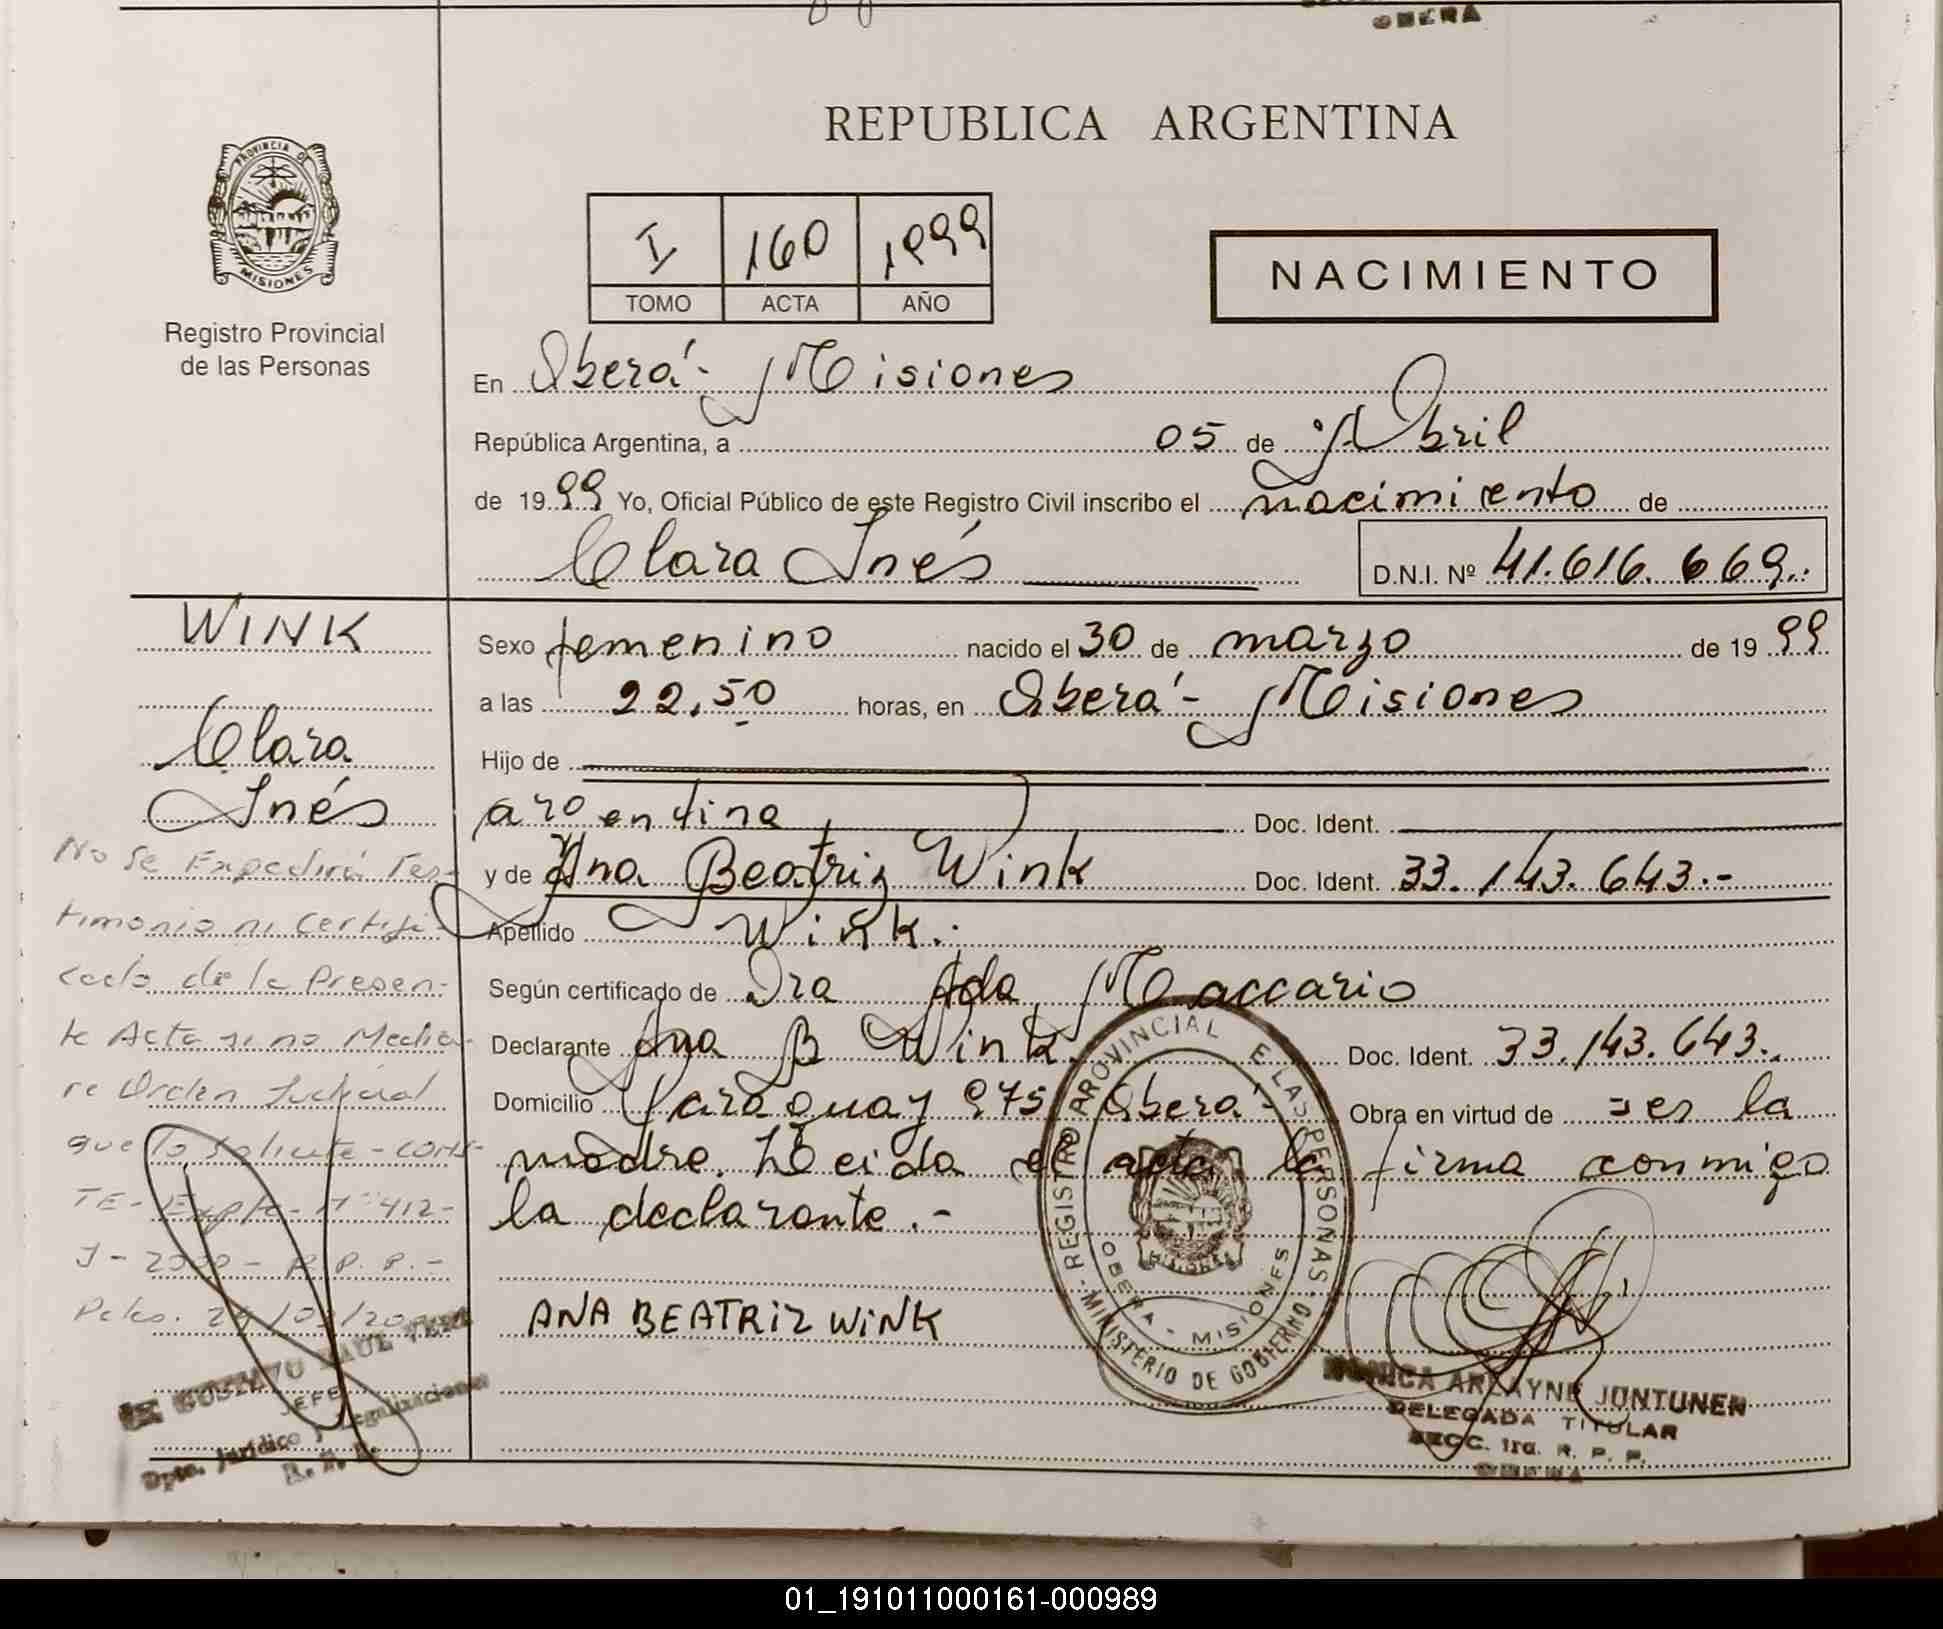 OBERA
REPUBLICA ARGENTINA
PROVINCIA DE
MISIONES
Registro Provincial
de las Personas
I 160 1999
TOMO ACTA AÑO
NACIMIENTO
En Oberá - Misiones
República Argentina, a 05 de Abril
de 1999 Yo, Oficial Público de este Registro Civil inscribo el nacimiento de
Clara Inés D.N.I. Nº 41.616.669.-
WINK
Clara
Inés
No se Expedirá Tes-
timonio ni Certifi-
cado de la Presen-
te Acta si no Media-
re Orden Judicial
que lo solicite - CONS-
TE - Expte - Nº 412 -
J - 2000 - R. P. P. -
JEFE
Dpto. Jurídico y Legalizaciones
R. P. P.
Sexo femenino nacido el 30 de marzo de 1999
a las 22,50 horas, en Oberá - Misiones
Hijo de
argentina Doc. Ident.
y de Ana Beatriz Wink Doc. Ident. 33.143.643.-
Apellido Wink.-
Según certificado de Dra Ada Maccario
Declarante Ana B Wink. Doc. Ident. 33.143.643.-
Domicilio Paraguay 975 Oberá - Obra en virtud de =es la
madre. Leida el acta la firma conmigo
la declarante.-
ANA BEATRIZ WINK
REGISTRO PROVINCIAL DE LAS PERSONAS - MINISTERIO DE GOBIERNO -
OBERA - MISIONES
MISIONES
ARLAYNE JONTUNEN
DELEGADA TITULAR
SECC. 1ra. R. P. P.
OBERA
01_191011000161-000989